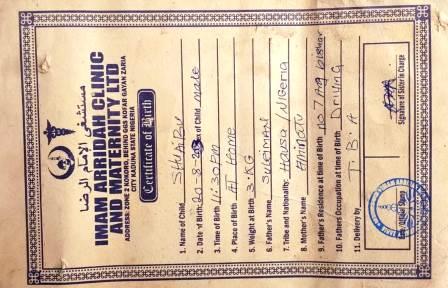 مستشفى الإمام الرضا
IMAM ARRIDAH CLINIC
AND MATERNITY LTD
ADDRESS: ZONE 2 KONGRO, BEHIND GGS KOFAR GAYAN ZARIA
CITY KADUNA STATE NIGERIA
Certificate of Birth
1. Name of Child SHUAIBU
2. Date of Birth 20-8- Sex of Child male
3. Time of Birth 4:30PM
4. Place of Birth AT HOME
5. Weight at Birth 3.KG
6. Father's Name SULEIMAN
7. Tribe and Nationality Hausa/Nigeria
8. Mother's Name Aminatu
9. Father's Residence at time of Birth NO 7
10. Fathers Occupation at time of Birth Driving
11. Delivery by T.B.A
Signature of Sister in Charge